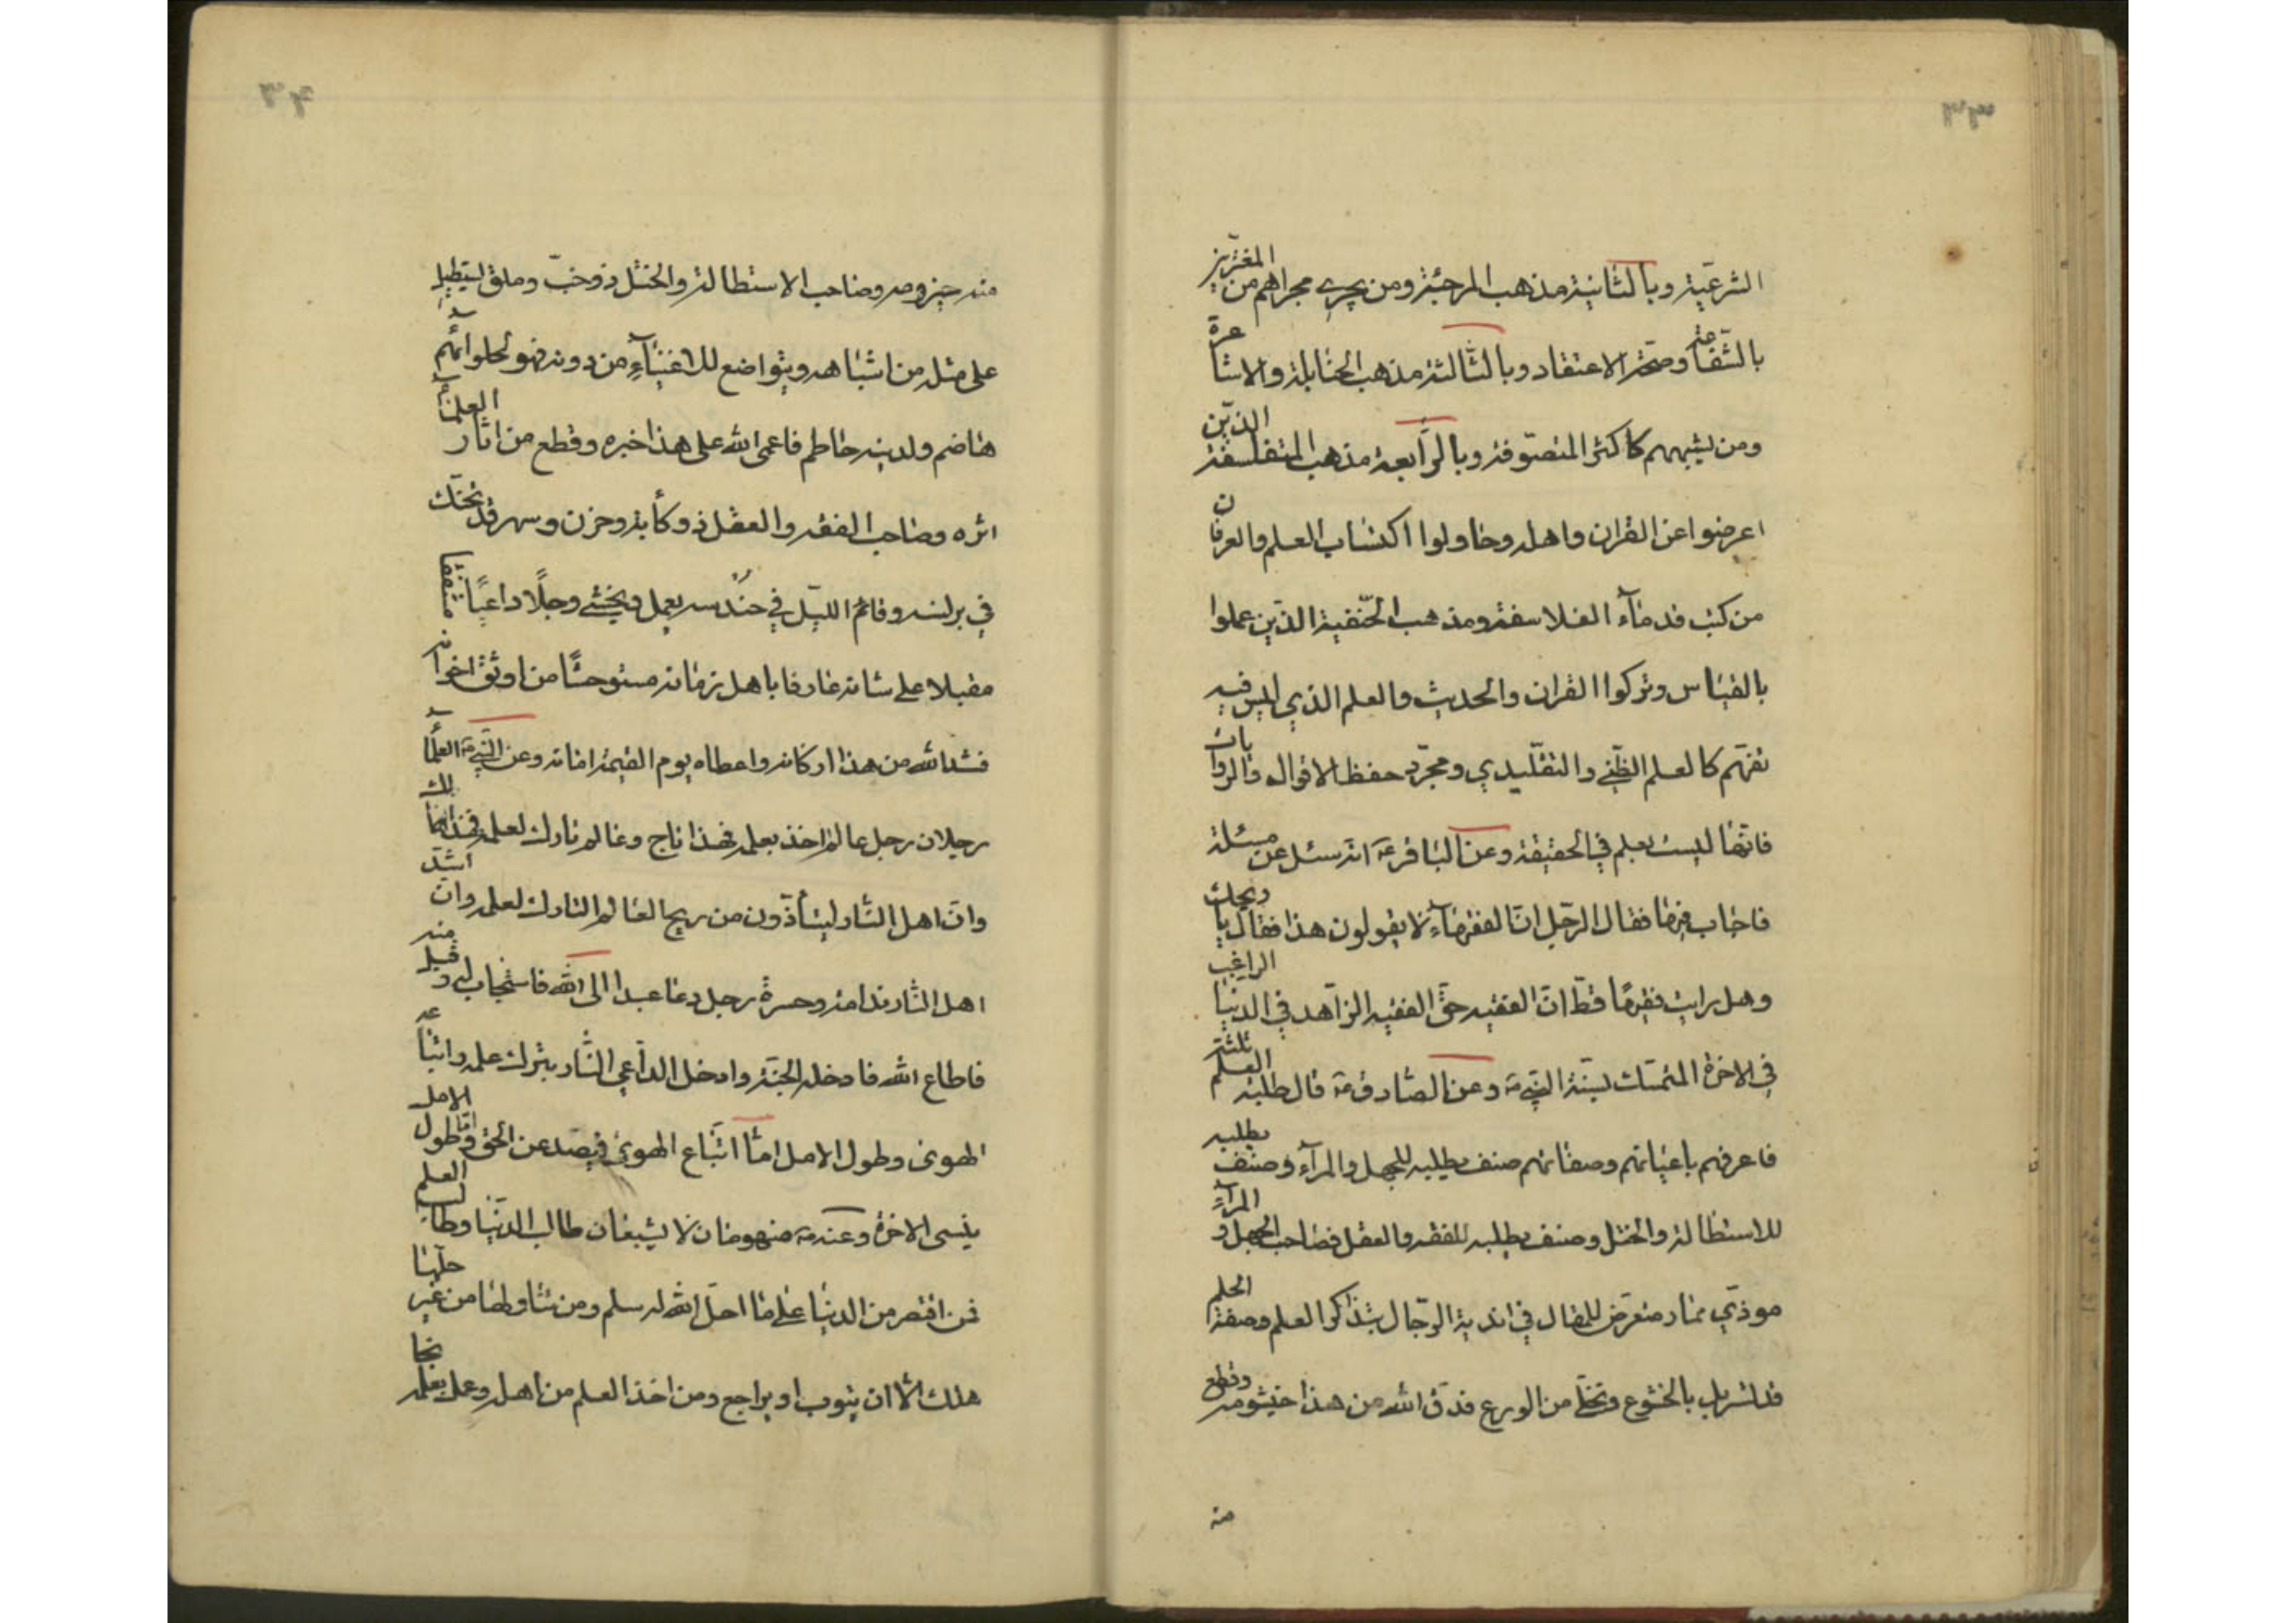 ٣٣
الشرعيّة وبالثانية مذهب المرجئة ومن يجري مجراهم من المغترين
بالشفاعة وصحّة الاعتقاد وبالثالثة مذهب الحنابلة والاشاعرة
ومن يشبههم كاكثر المتصوّفة وبالرّابعة مذهب المتفلسفة الذين
اعرضوا عن القران واهله وحاولوا اكتساب العلم والعرفان
من كتب قدمآء الفلاسفة ومذهب الحنفية الذين عملوا
بالقياس وتركوا القران والحديث والعلم الذي ليس فيه
تفهّم كالعلم الظنّي والتقليدي ومجرّد حفظ الاقوال والروايات
فانّها ليست بعلم في الحقيقة وعن الباقر ع انه سئل عن مسئلة
فاجاب فيها فقال الرجل انّ الفقهآء لا يقولون هذا فقال يا ويحك
وهل رايت فقيهًا قطّ انّ الفقيه حقّ الفقيه الزّاهد في الدنيا الراغب
في الاخرة المتمسّك بسنّة النبي ص وعن الصّادق ع قال طلبة العلم ثلثة
فاعرفهم باعيانهم وصفاتهم صنف يطلبه للجهل والمرآء وصنف يطلبه
للاستطالة والختل وصنف يطلبه للفقه والعقل فصاحب الجهل والمرآء
موذي ممار متعرّض للمقال في اندية الرّجال بتذاكر العلم وصفة الحلم
قد تسربل بالخشوع وتخلّى من الورع فدقّ الله من هذا خيشومه وقطع
منه
٣٤
منه حيزومه وصاحب الاستطالة والختل ذو خبّ وملق يستطيل
على مثله من اشباهه ويتواضع للاغنيآء من دونه فهو لحلوائهم
هاضم ولدينه حاطم فاعمى الله على هذا خبره وقطع من اثار العلمآء
اثره وصاحب الفقه والعقل ذو كأبة وحزن وسهر قد تحنّك
في برنسه وقام الليل في حندسه يعمل ويخشى وجلًا داعيًا مشفقا
مقبلا على شانه عارفا باهل زمانه مستوحشًا من اوثق اخوانه
فشد الله من هذا اركانه واعطاه يوم القيمة امانه وعن النبي ص العلمآء
رجلان رجل عالم اخذ بعلمه فهذا ناج وعالم تارك لعلمه فهذا هالك
وانّ اهل النّار ليتأذّون من ريح العالم التارك لعلمه وانّ اشدّ
اهل النّار ندامة وحسرة رجل دعا عبدا الى الله فاستجاب له وقبل منه
فاطاع الله فادخله الجنّة وادخل الدّاعي النّار بتركه علمه واتباعه
الهوى وطول الامل امّا اتّباع الهوى فيصدّ عن الحق وامّا طول الامل
ينسى الاخرة وعنه ص منهومان لا يشبعان طالب الدنيا وطالب العلم
فمن اقتصر من الدنيا على ما احلّ الله له سلم ومن تناولها من غير حلّها
هلك الّا ان يتوب او يراجع ومن اخذ العلم من اهله وعمل بعلمه نجا